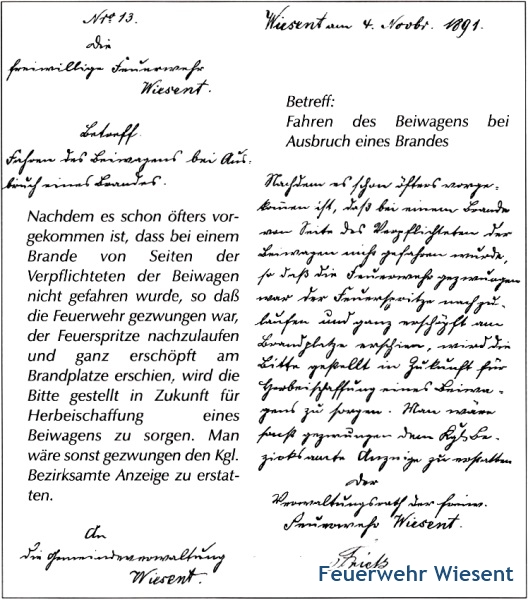 Nro 13.
Die
freiwillige Feuerwehr
Wiesent.
Betreff.
Fahren des Beiwagens bei Aus-
bruch eines Brandes.
Nachdem es schon öfters vor-
gekommen ist, dass bei einem
Brande von Seiten der
Verpflichteten der Beiwagen
nicht gefahren wurde, so daß
die Feuerwehr gezwungen war,
der Feuerspritze nachzulaufen
und ganz erschöpft am
Brandplatze erschien, wird die
Bitte gestellt in Zukunft für
Herbeischaffung eines
Beiwagens zu sorgen. Man
wäre sonst gezwungen den Kgl.
Bezirksamte Anzeige zu erstat-
ten.
An
die Gemeindeverwaltung
Wiesent.
Wiesent am 4. Novbr. 1891.
Betreff:
Fahren des Beiwagens bei
Ausbruch eines Brandes
Nachdem es schon öfters vorge-
kommen ist, daß bei einem Brande
von Seite des Verpflichteten der
Beiwagen nicht gefahren wurde,
so daß die Feuerwehr gezwungen
war der Feuerspritze nachzu-
laufen und ganz erschöpft am
Brandplatze erschien, wird die
Bitte gestellt in Zukunft für
Herbeischaffung eines Beiwa-
gens zu sorgen. Man wäre
sonst gezwungen dem Kgl. Be-
zirksamte Anzeige zu erstatten
Der
Verwaltungsrath der freiw.
Feuerwehr Wiesent.
Feuerwehr Wiesent